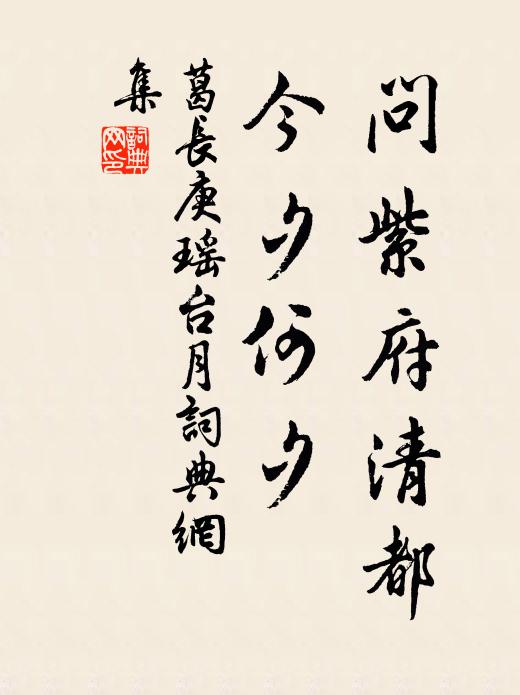 問紫府清都
今夕何夕
葛長庚瑶台月詞典網
集
詞典
网印